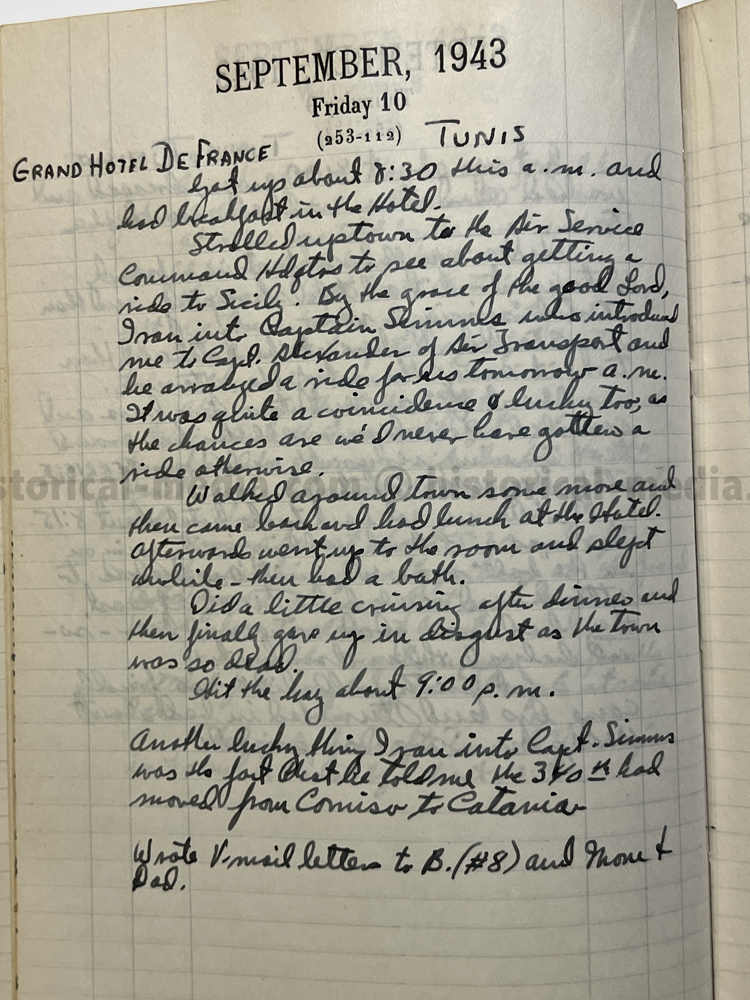 SEPTEMBER, 1943
Friday 10
(253-112) TUNIS
GRAND HOTEL DE FRANCE
Got up about 8:30 this a.m. and
had breakfast in the Hotel.
Strolled uptown to the Air Service
Command Hdqtrs to see about getting a
ride to Sicily. By the grace of the good Lord,
I ran into Captain Simms who introduced
me to Capt. Alexander of Air Transport and
he arranged a ride for us tomorrow a.m.
It was quite a coincidence & lucky too, as
the chances are we'd never have gotten a
ride otherwise.
Walked around town some more and
then came back and had lunch at the Hotel.
Afterwards went up to the room and slept
awhile - then had a bath.
Did a little cruising after dinner and
then finally gave up in disgust as the town
was so dead.
Hit the hay about 9:00 p.m.
Another lucky thing I ran into Capt. Simms
was the fact that he told me the 340th had
moved from Comiso to Catania
Wrote V-mail letters to B. (#8) and Mom &
Dad.